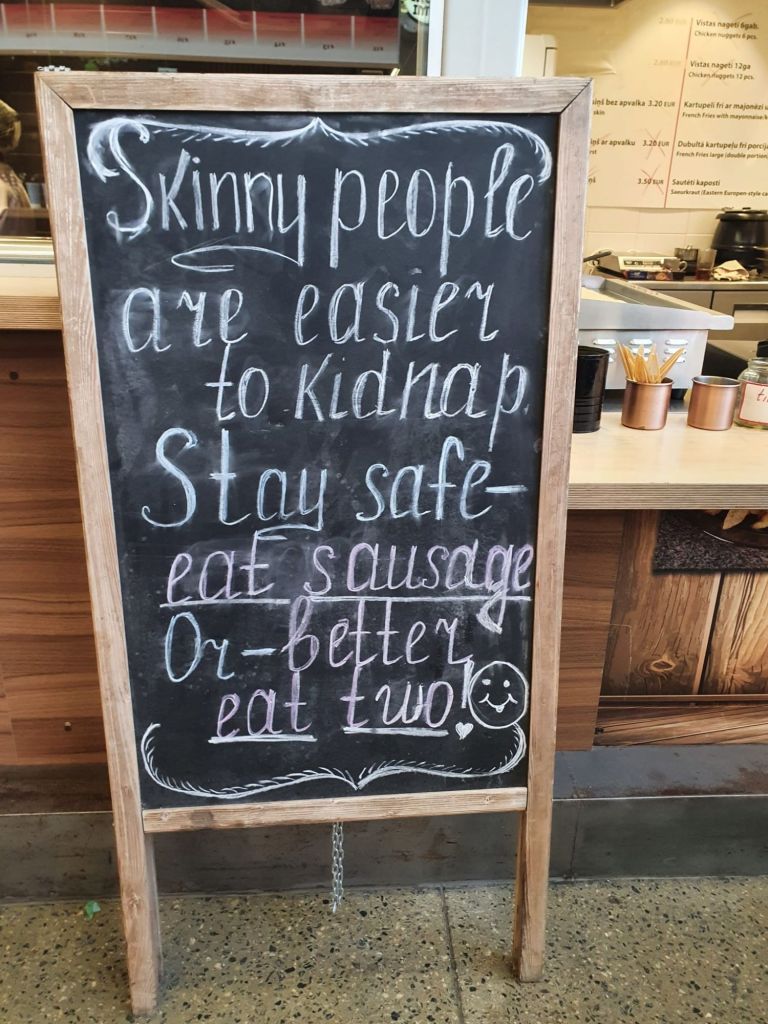 Skinny people
are easier
to kidnap.
Stay safe-
eat sausage
Or-better,
eat two!
Vistas nageti 6gab.
Chicken nuggets 6 pcs.
Vistas nageti 12ga
Chicken nuggets 12 pcs.
bez apvalka 3.20 EUR
skin
Kartupeļi fri ar majonēzi
French Fries with mayonnaise/k
ar apvalku 3.20 EUR
Dubultā kartupeļu fri porcija
French Fries large (double portion)
3.50 EUR
Sautēti kāposti
Saeurkraut (Eastern Europen-style ca